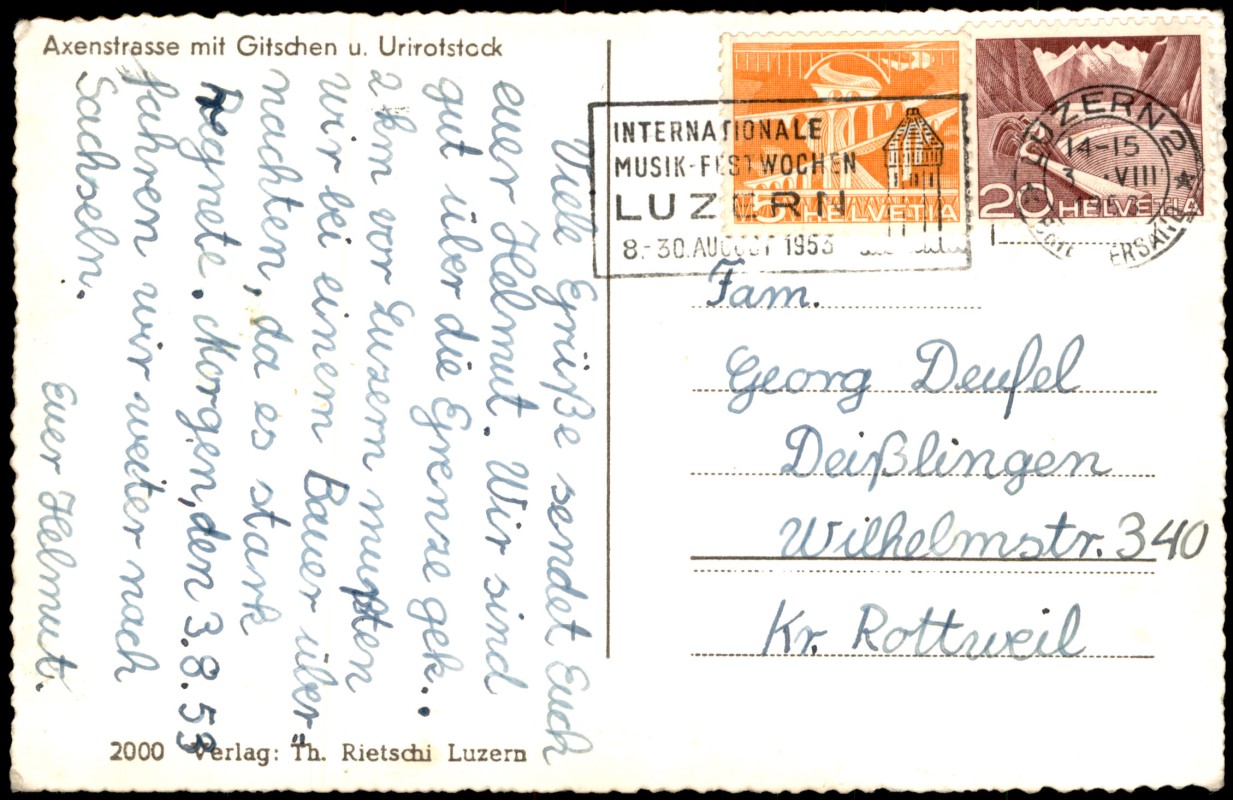 Axenstrasse mit Gitschen u. Urirotstock
Viele Grüße sendet Euch
euer Helmut. Wir sind
gut über die Grenze gek..
2 km vor Luzern mußten
wir bei einem Bauer über-
nachten, da es stark
regnete. Morgen, den 3.8.53
fahren wir weiter nach
Sachseln.
Euer Helmut.
2000 Verlag: Th. Rietschi Luzern
INTERNATIONALE
MUSIK-FESTWOCHEN
LUZERN
8.-30. AUGUST 1953
5 HELVETIA
20 HELVETIA
LUZERN 2
14-15
3. VIII
Fam.
Georg Deufel
Deißlingen
Wilhelmstr. 340
Kr. Rottweil